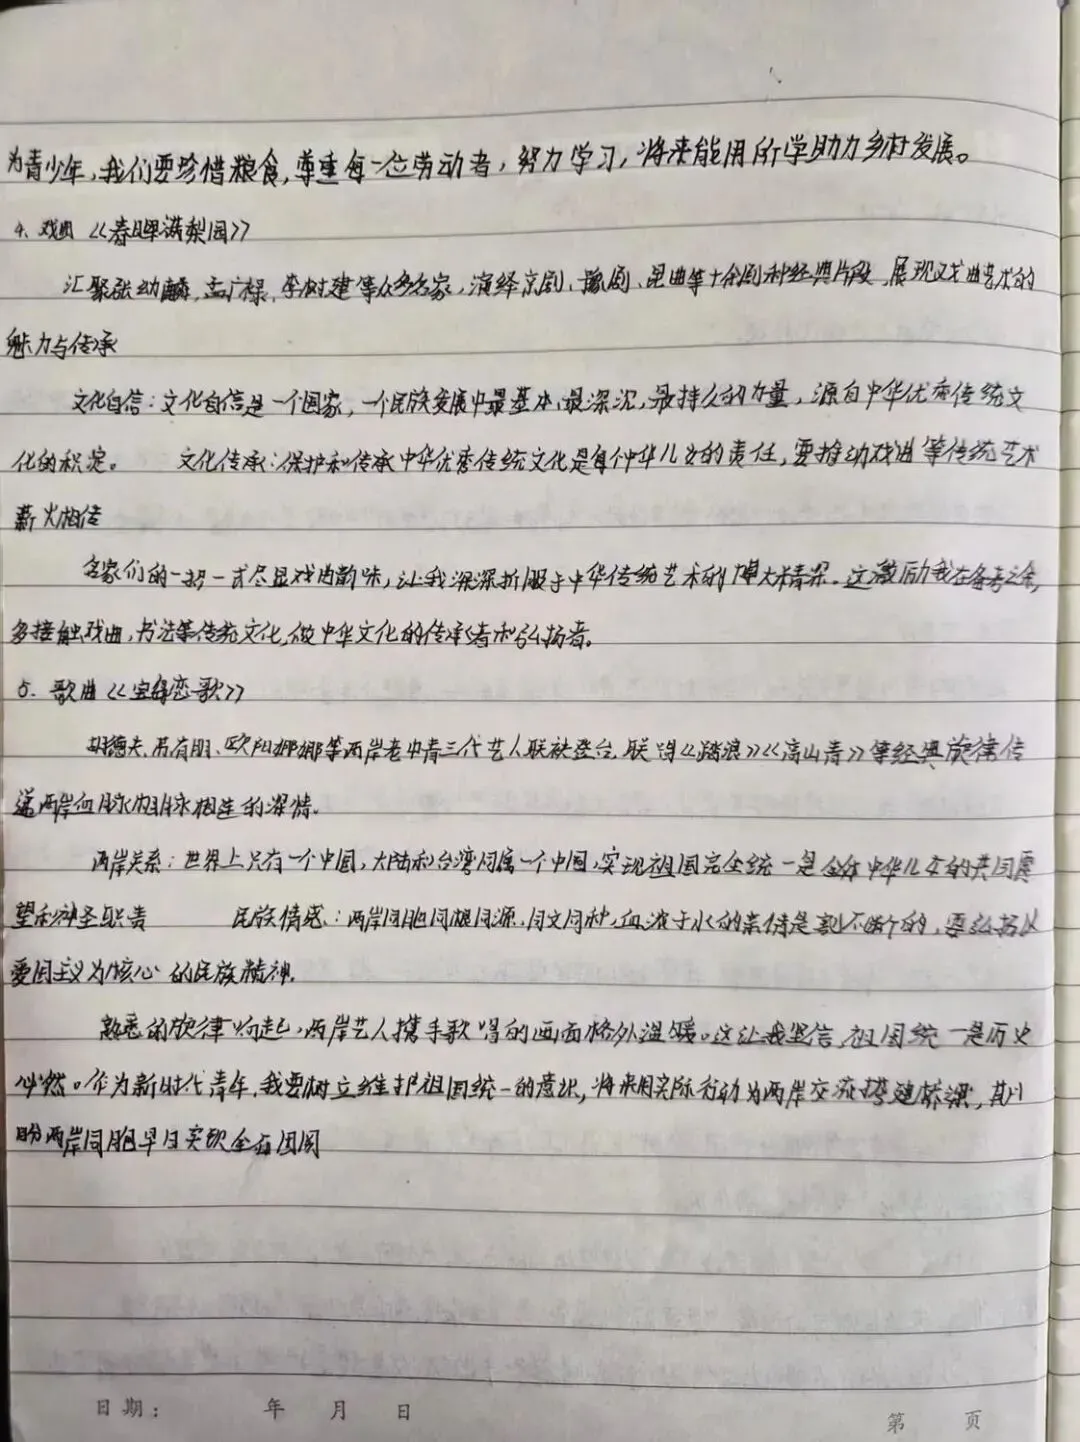 为青少年,我们要珍惜粮食,尊重每一位劳动者,努力学习,将来能用所学助力乡村发展。
4. 戏曲《春晖满梨园》
汇聚张幼麟,孟广禄,李树建等众多名家,演绎京剧、豫剧、昆曲等十余剧种经典片段,展现戏曲艺术的
魅力与传承
文化自信:文化自信是一个国家,一个民族发展中最基本、最深沉、最持久的力量,源自中华优秀传统文
化的积淀。 文化传承:保护和传承中华优秀传统文化是每个中华儿女的责任,要推动戏曲等传统艺术
薪火相传
名家们的一招一式尽显戏曲韵味,让我深深折服于中华传统艺术的博大精深。这激励我在备考之余,
多接触戏曲,书法等传统文化,做中华文化的传承者和弘扬者。
5. 歌曲《宝岛恋歌》
胡德夫、吊有朋、欧阳娜娜等两岸老中青三代艺人联袂登台,联唱《踏浪》《高山青》等经典旋律传
递两岸血脉相连的深情。
两岸关系:世界上只有一个中国,大陆和台湾同属一个中国,实现祖国完全统一是全体中华儿女的共同愿
望和神圣职责 民族情感:两岸同胞同根同源、同文同种,血浓于水的亲情是割不断的,要弘扬以
爱国主义为核心的民族精神。
熟悉的旋律响起,两岸艺人携手歌唱的画面格外温暖。这让我坚信,祖国统一是历史
必然。作为新时代青年,我要树立维护祖国统一的意识,将来用实际行动为两岸交流搭建桥梁,期
盼两岸同胞早日实现全面团圆
日期: 年 月 日
第 页